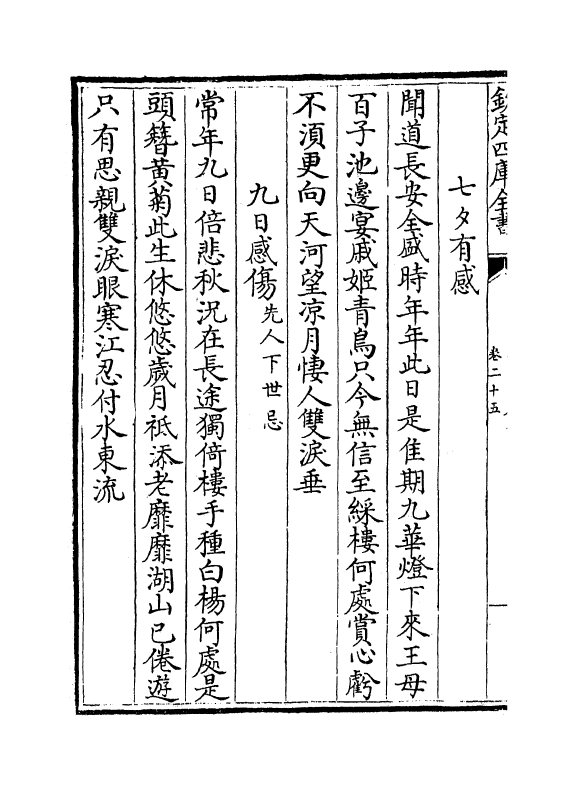 欽定四庫全書
卷二十五
七夕有感
聞道長安全盛時年年此日是佳期九華燈下來王母
百子池邊宴戚姬青鳥只今無信至綵樓何處賞心虧
不湏更向天河望凉月悽人雙淚垂
九日感傷先人下世忌
常年九日倍悲秋况在長途獨倚樓手種白楊何處是
頭簪黄菊此生休悠悠歲月祗添老靡靡湖山已倦遊
只有思親雙淚眼寒江忍付水東流